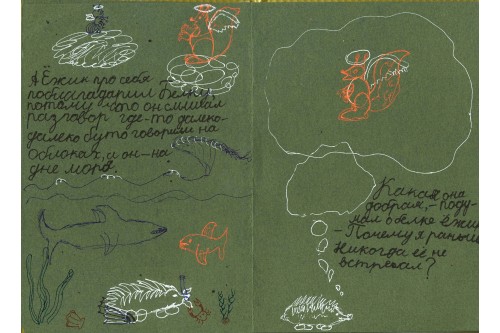 А Ёжик про себя
поблагадарил Белку,
потому что он слышал
разговор где-то далеко-
далеко буто говорили на
облоках, а он-на
дне моря.
Какая она
добрая,- поду-
мал о белке Ёжик
- Почему я раньше
никогда её не
встречал?